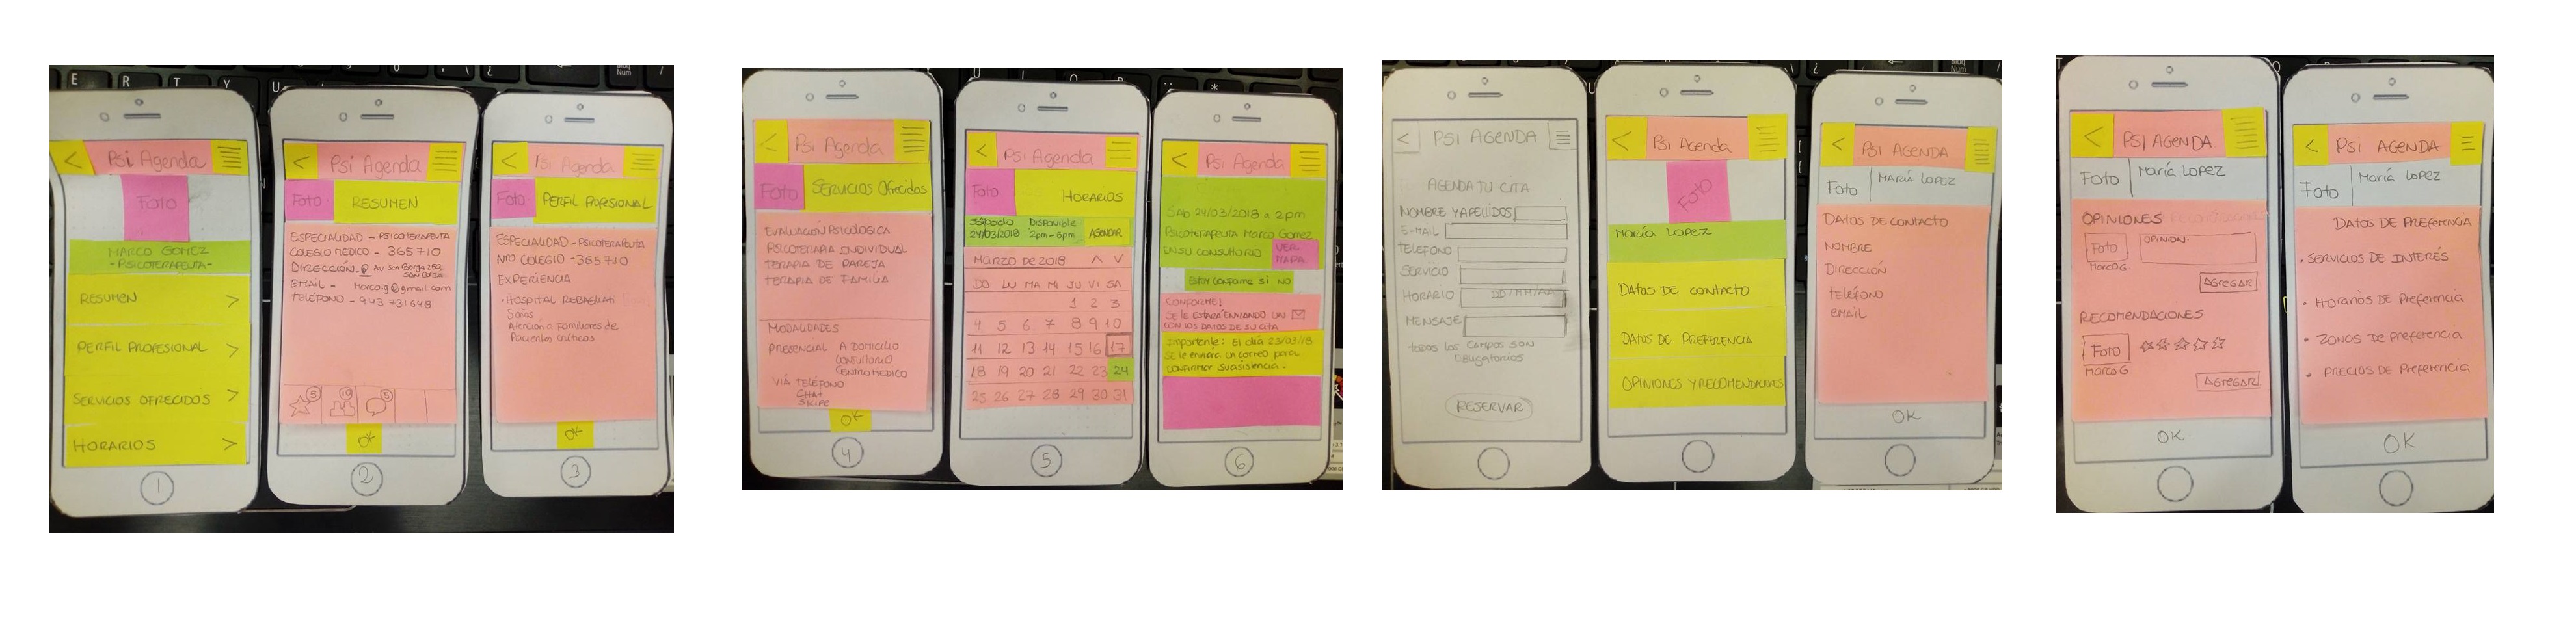 E R T Y U
Bloq
Num
<
Psi Agenda
Foto
MARCO GOMEZ
-PSICOTERAPEUTA-
RESUMEN >
PERFIL PROFESIONAL >
SERVICIOS OFRECIDOS >
HORARIOS >
1
<
Psi Agenda
Foto
RESUMEN
ESPECIALIDAD - PSICOTERAPEUTA
COLEGIO MEDICO - 365710
DIRECCIÓN - Av San Borja 250,
SAN BORJA
EMAIL - Marco.g@gmail.com
TELÉFONO - 943 731648
5 10 5
OK
2
<
Psi Agenda
Foto
PERFIL PROFESIONAL
ESPECIALIDAD - PSICOTERAPEUTA
Nro COLEGIO - 365710
EXPERIENCIA
• Hospital REBAGLIATI
5 años
Atención a Familiares de
Pacientes críticos
OK
3
<
Psi Agenda
Foto
SERVICIOS Ofrecidos
EVALUACIÓN PSICOLÓGICA
PSICOTERAPIA INDIVIDUAL
TERAPIA DE PAREJA
TERAPIA DE FAMILIA
MODALIDADES
PRESENCIAL A DOMICILIO
CONSULTORIO
CENTRO MEDICO
VIA TELÉFONO
CHAT
SKIPE
OK
4
<
Psi Agenda
Foto
HORARIOS
Sábado DISPONIBLE
24/03/2018 2pm-6pm AGENDAR
MARZO DE 2018 ∧ ∨
DO LU MA MI JU VI SA
1 2 3
4 5 6 7 8 9 10
11 12 13 14 15 16 17
18 19 20 21 22 23 24
25 26 27 28 29 30 31
5
<
Psi Agenda
SAB 24/03/2018 a 2pm
Psicoterapeuta Marco Gomez
EN SU CONSULTORIO VER
MAPA
ESTOY CONFORME SI NO
CONFORME!
SE LE ESTARÁ ENVIANDO UN
CON LOS DATOS DE SU CITA
Importante: El día 23/03/18
se le enviara un correo para
confirmar su asistencia.
6
<
PSI AGENDA
AGENDA TU CITA
NOMBRE Y APELLIDOS
E-MAIL
TELEFONO
SERVICIO
HORARIO DD/MM/AA
MENSAJE
TODOS LOS CAMPOS SON
OBLIGATORIOS
RESERVAR
<
Psi Agenda
FOTO
María LOPEZ
DATOS DE CONTACTO
DATOS DE PREFERENCIA
OPINIONES Y RECOMENDACIONES
<
PSI AGENDA
Foto
MARÍA LOPEZ
DATOS DE CONTACTO
NOMBRE
DIRECCIÓN
TELÉFONO
EMAIL
OK
<
PSI AGENDA
Foto
María LOPEZ
OPINIONES
Foto
Marco G.
OPINION-
AGREGAR
RECOMENDACIONES
Foto
Marco G.
AGREGAR
OK
<
PSI AGENDA
Foto
María LOPEZ
DATOS DE PREFERENCIA
• SERVICIOS DE INTERÉS
• Horarios DE Preferencia
• ZONAS DE Preferencia
• PRECIOS DE Preferencia
OK